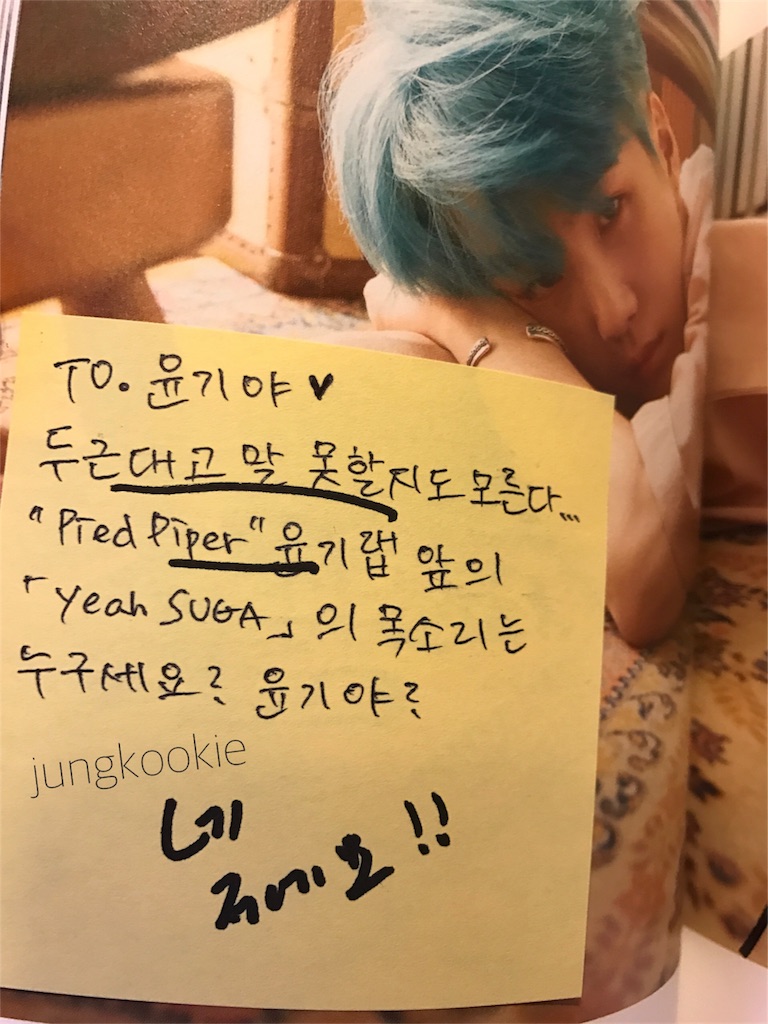 TO. 윤기야 ♥
두근대고 말 못할지도 모른다...
"Pied Piper" 윤기랩 앞의
「Yeah SUGA」의 목소리는
누구세요? 윤기야?
jungkookie
네
저에요!!